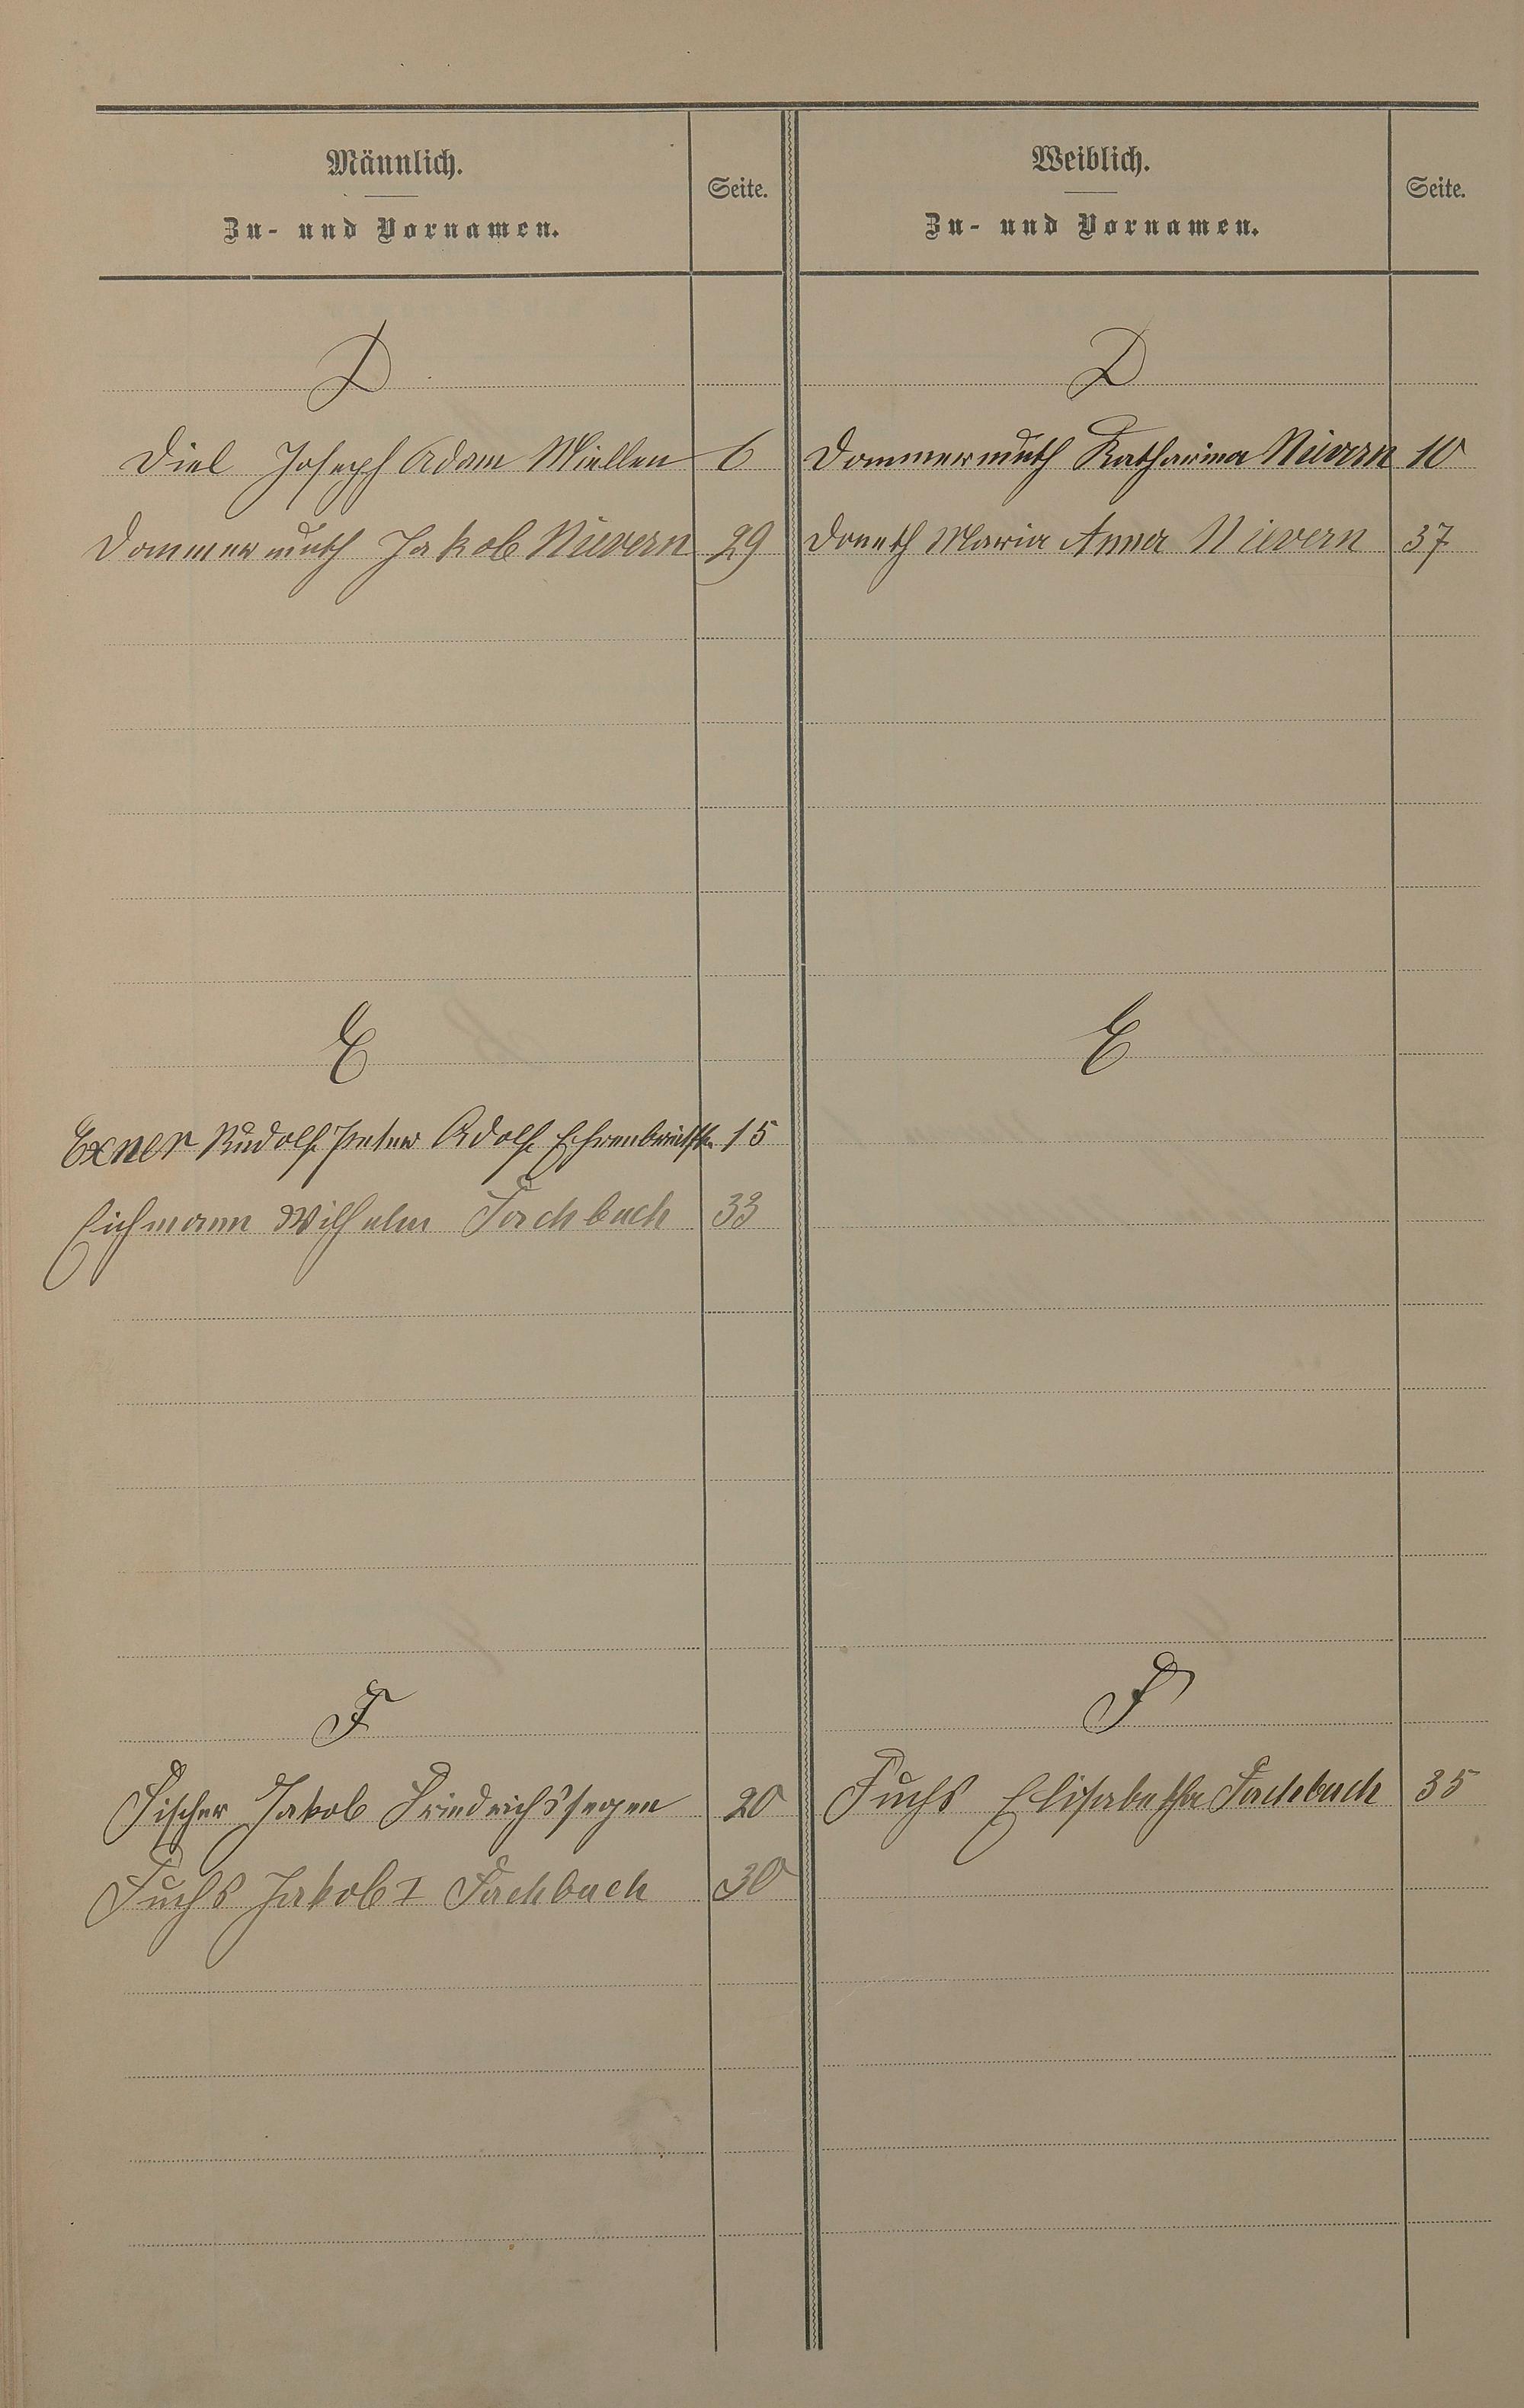 Männlich.
Zu- und Vornamen.
Seite.
Weiblich.
Zu- und Vornamen.
Seite.
D
D
Diel Joseph Adam Miellen 6
Dommermuth Katharina Nievern 10
Dommermuth Jakob Nievern 29
Donath Maria Anna Nievern 37
E
E
Exner Rudolf Peter Adolf 15
Eichmann Wilhelm Fachbach 33
F
F
Fischer Jakob Friedrichssegen 20
Fuchs Elisabetha Fachbach 35
Fuchs Jakob I Fachbach 30